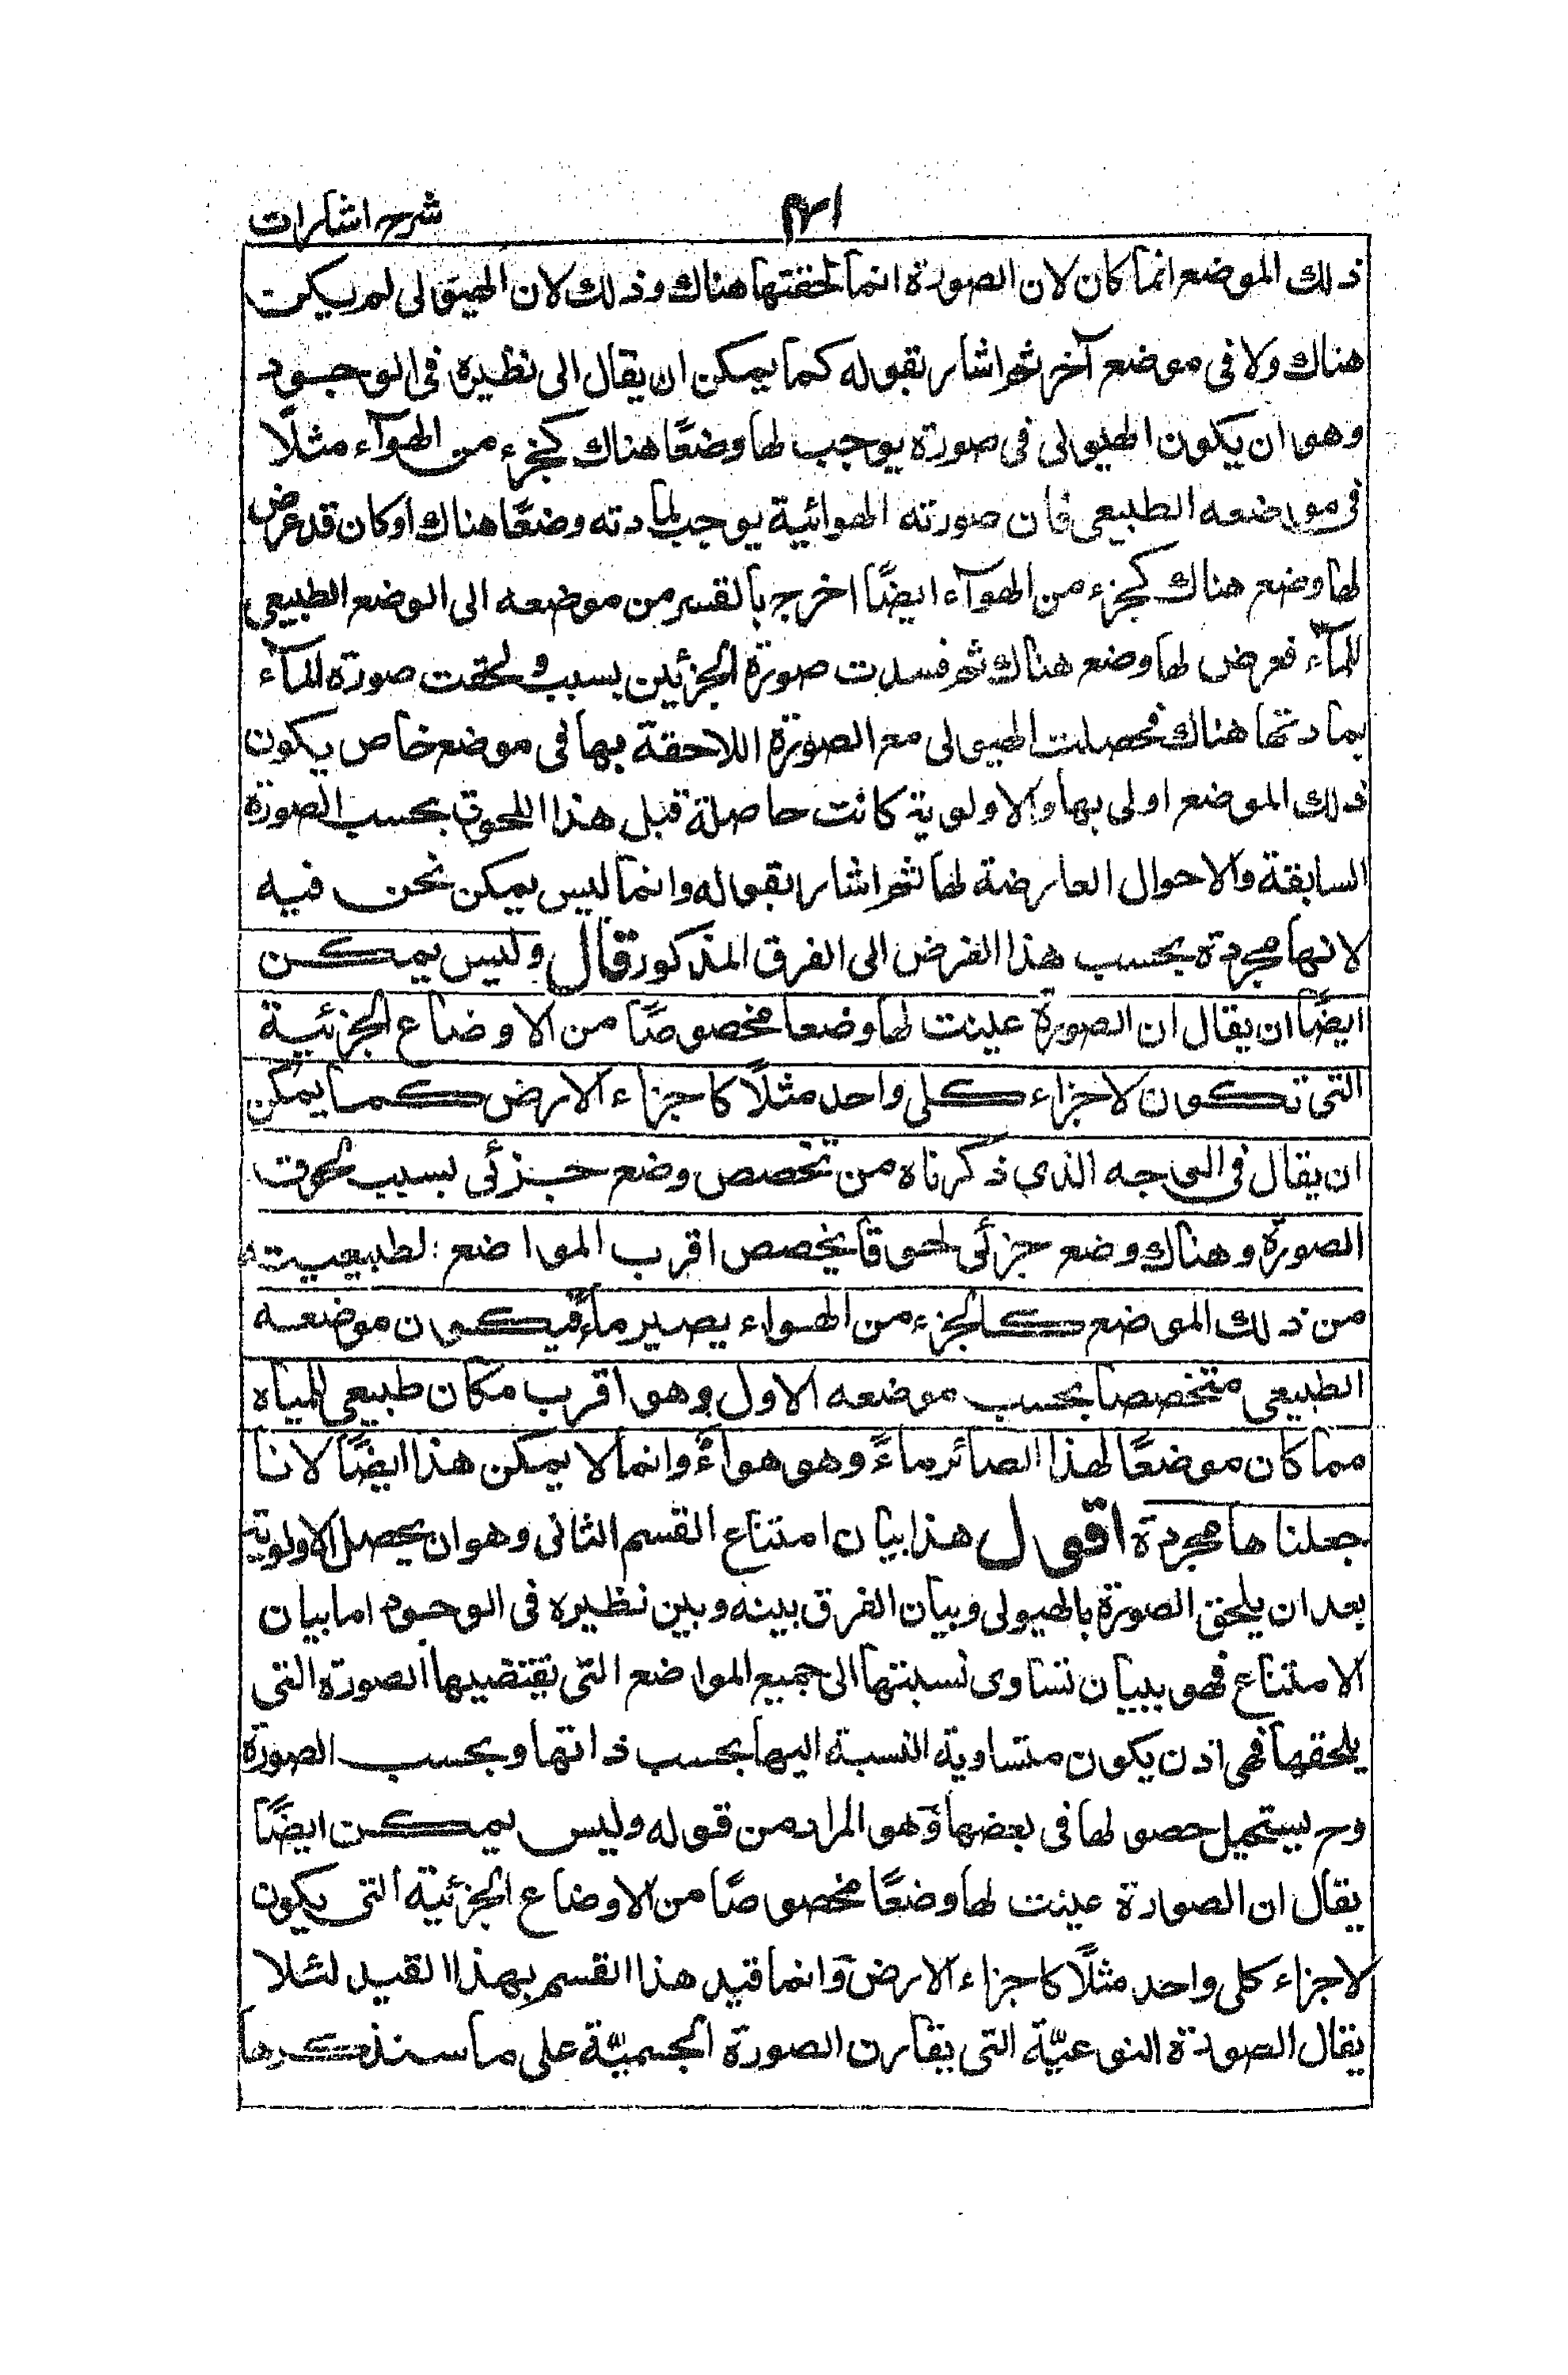 شرح اشارات
ذلك الموضع انما كان لان الصورة انما لحقتها هناك وذلك لان الهيولى لم يكن
هناك ولا فى موضع آخر ثم اشار بقوله كما يمكن ان يقال الى نظيره فى الوجود
وهو ان يكون الهيولى فى صورة يوجب لها وضعًا هناك كجزء من الهوآء مثلًا
فى موضعه الطبيعى فان صورته الهوائية يوجب لمادته وضعًا هناك او كان قد عرض
لها وضع هناك كجزء من الهوآء ايضًا اخرج بالقسر من موضعه الى الوضع الطبيعى
للمآء فعرض لها وضع هناك ثم فسدت صورة الجزئين بسبب ولحقت صورة المآء
بمادتها هناك فحصلت الهيولى مع الصورة اللاحقة بها فى موضع خاص يكون
ذلك الموضع اولى بها والاولوية كانت حاصلة قبل هذا اللحوق بحسب الصورة
السابقة والاحوال العارضة لها ثم اشار بقوله وانما ليس يمكن نحن فيه
لانها مجردة بحسب هذا الفرض الى الفرق المذكور قال وليس يمكن
ايضًا ان يقال ان الصورة عينت لها وضعا مخصوصًا من الاوضاع الجزئية
التى تكون لاجزاء كلى واحد مثلًا كاجزاء الارض كما يمكن
ان يقال فى الوجه الذى ذكرناه من تخصص وضع جزئى بسبب لحوق
الصورة وهناك وضع جزئى لحوقا يخصص اقرب المواضع لطبيعيته
من ذلك الموضع كالجزء من الهواء يصير ماءً فيكون موضعه
الطبيعى متخصصا بحسب موضعه الاول وهو اقرب مكان طبيعى للمياه
مما كان موضعًا لهذا الصائر ماءً وهو هواءً وانما لا يمكن هذا ايضًا لانا
جعلناها مجردة اقول هذا بيان امتناع القسم الثانى وهو ان يحصل الاولوية
بعد ان يلحق الصورة بالهيولى وبيان الفرق بينه وبين نظيره فى الوجود اما بيان
الامتناع فهو ببيان تساوى نسبتها الى جميع المواضع التى يقتضيها الصورة التى
يلحقها فهى اذن يكون متساوية النسبة اليها بحسب ذاتها وبحسب الصورة
وح يستحيل حصولها فى بعضها وهو المراد من قوله وليس يمكن ايضًا
يقال ان الصوارة عينت لها وضعًا مخصوصًا من الاوضاع الجزئية التى يكون
لاجزاء كلى واحد مثلًا كاجزاء الارض وانما قيد هذا القسم بهذا القيد لئلا
يقال الصورة النوعيّة التى يقارن الصورة الجسميّة على ما سنذكرها